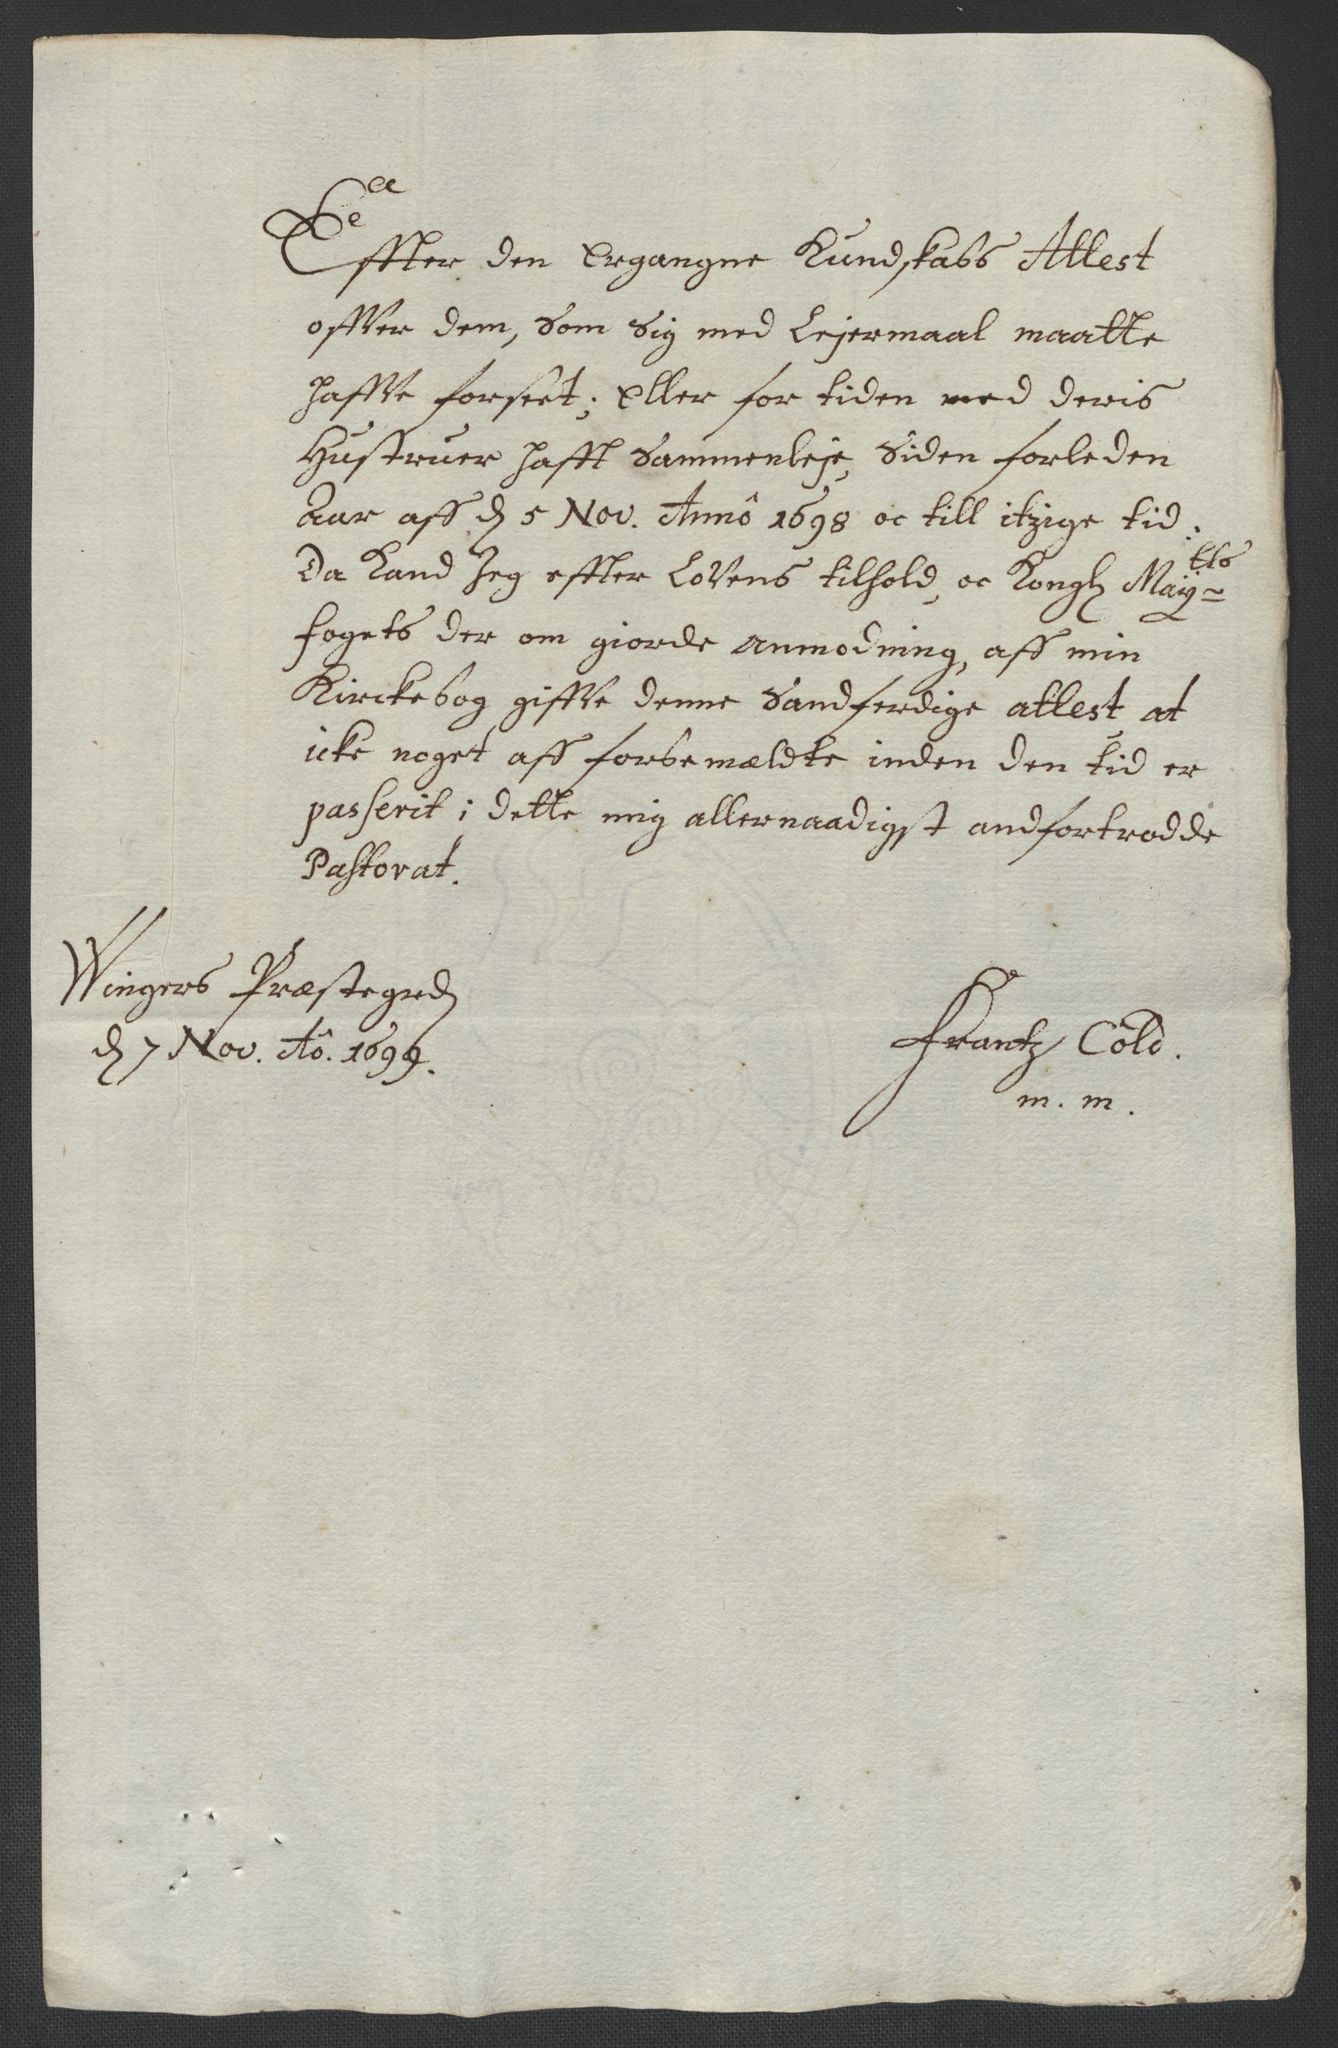 Effter den ergangne Kundskabs Attest
offver dem, Som Sig med Lejermaal maatte
haffve forseet; eller for tiden med deris
Hustruer hafft Sammenleje, Siden forleden
Aar aff d 5 Nov. Annô 1698 oc till itzige tid:
Da Kand Jeg effter Lovens tilhold, oc Kongl May=tts
fogets der om giorde anmodning, aff min
Kirckebog giffve denne Sandferdige attest at
icke noget aff forbemældte inden den tid er
passerit i dette mig allernaadigst andfortrodde
Pastorat.
Wingers Præstegrd
d 7 Nov. Aô. 1699.
Frantz Cold.
m. m.